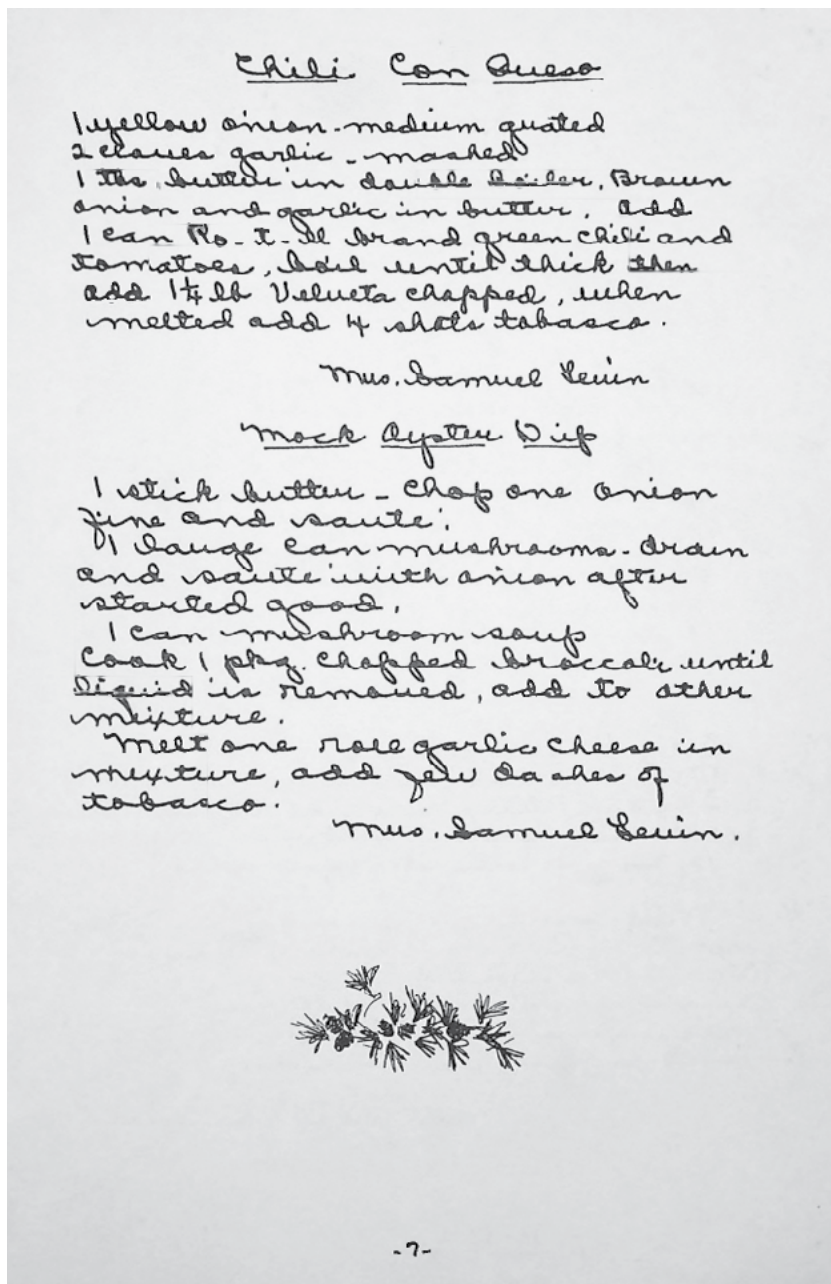 Chili Con Queso
1 yellow onion - medium grated
2 cloves garlic - mashed
1 tbs. butter in double boiler. Brown
onion and garlic in butter. Add
1 can Ro-t-el brand green chili and
tomatoes, boil until thick then
add 1 1/4 lb Velveta chopped, when
melted add 4 shots tobasco.
Mrs. Samuel Levin
Mock Oyster Dip
1 stick butter - chop one onion
fine and sauté.
1 large can mushrooms - drain
and sauté with onion after
started good.
1 can mushroom soup
Cook 1 pkg. chopped broccoli until
liquid is removed, add to other
mixture.
Melt one role garlic cheese in
mixture, add few dashes of
tobasco.
Mrs. Samuel Levin.
-7-